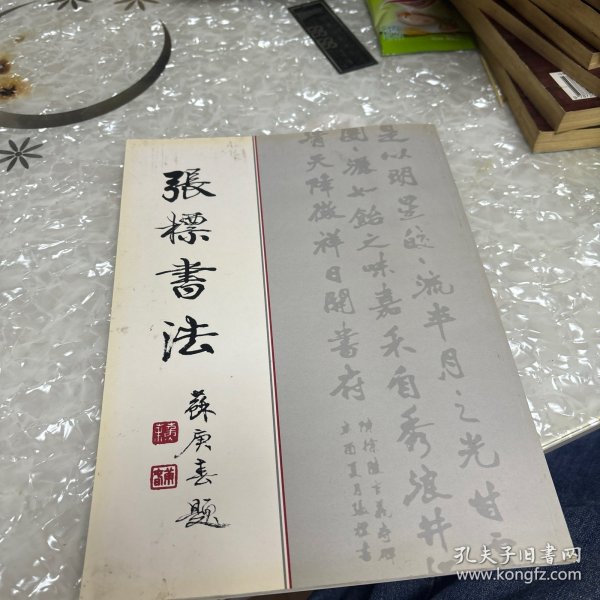 張標書法
蘇庚春題
是以明星皎皎流半月之光甘露
團團渡如飴之味嘉禾自秀浪井
皆天降徵祥日開書府
孔夫子旧书网
www.kongfz.com